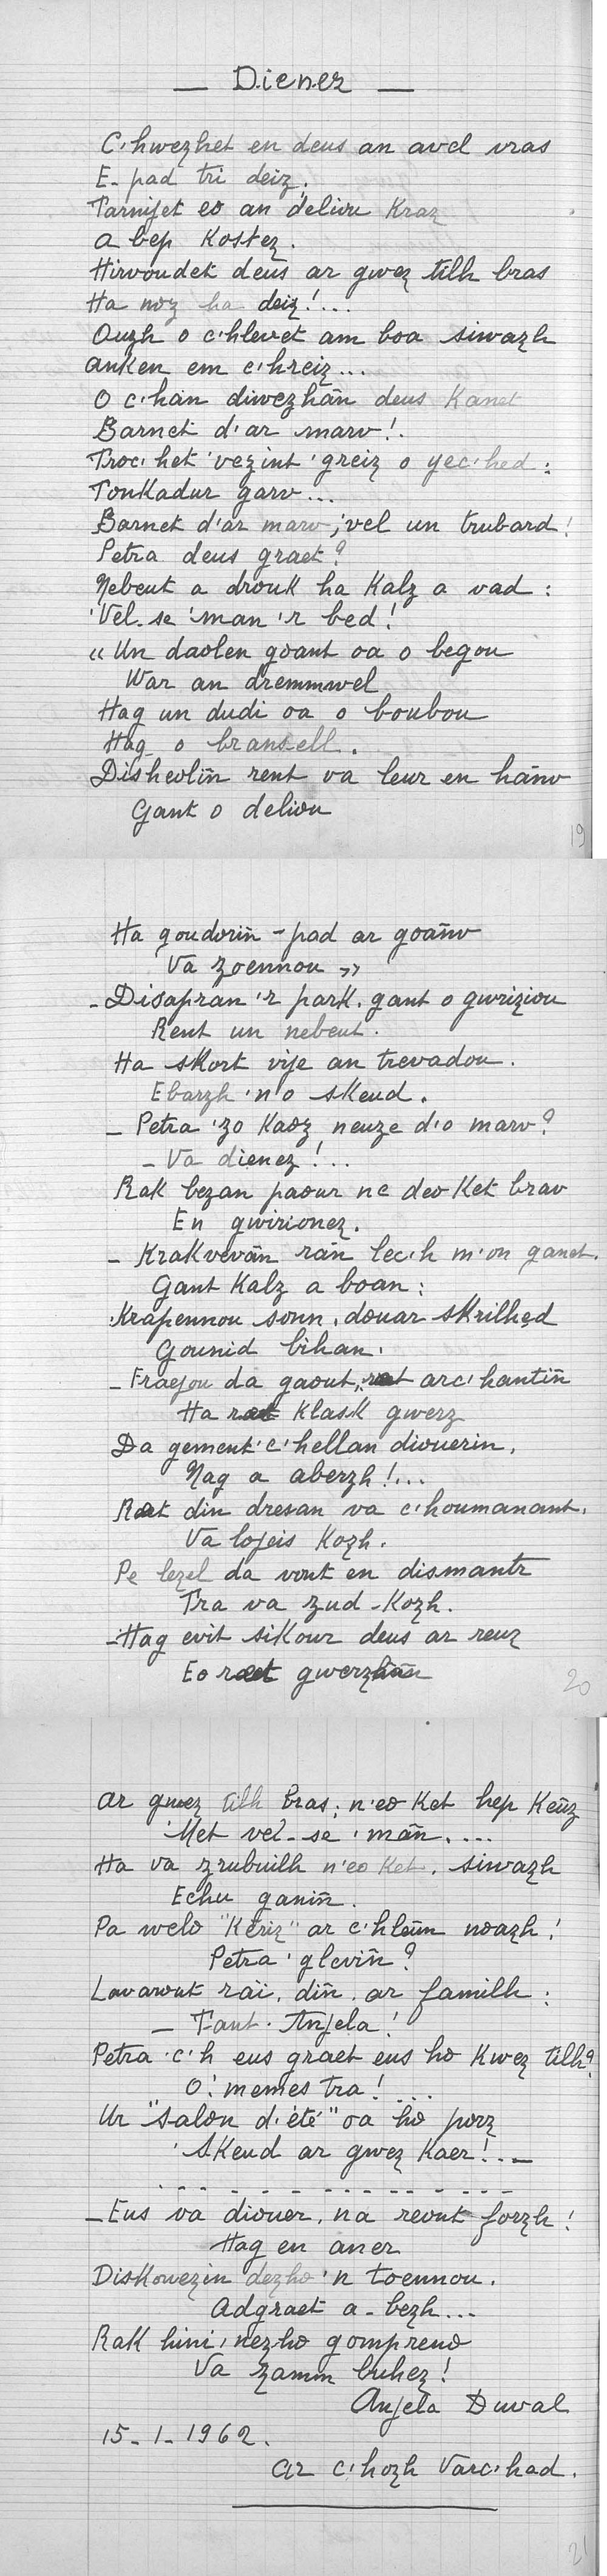 — Dienez —
C'hwezhet en deus an avel vras
E-pad tri deiz.
Tarnijet eo an deliou Kraz
A bep Kostez.
Hirvoudet deus ar gwez tilh bras
Ha noz ha deiz!...
Ouzh o c'hlevet am boa siwazh
Anken em c'hreiz...
O c'hân diwezhañ deus Kanet
Barnet d'ar marv!.
Troc'het 'vezint 'greiz o yec'hed:
Tonkadur garv...
Barnet d'ar marv; 'vel un trubard!
Petra deus graet?
Nebeut a drouk ha Kalz a vad:
'Vel-se 'man 'r bed!
« Un daolen goant oa o begou
War an dremmwel
Hag un dudi oa o boubou
Hag o bransell.
Disheoliñ rent va leur en hañv
Gant o deliou
19
Ha goudoriñ -pad ar goañv
Va zoennou »
- Disapran 'r park. gant o gwriziou
Rent un nebeut.
Ha skort vije an trevadou.
Ebarzh 'n o skeud.
- Petra 'zo Kaoz neuze d'o marv?
- Va dienez!..
Rak bezañ paour ne deo Ket brav
En gwirionez.
- Krakvevañ ran lec'h m'on ganet.
Gant Kalz a boan:
Krapennou sonn, douar skrilhed
Gounid bihan.
- Fraejou da gaout, ret arc'hantiñ
Ha ret Klask gwerz
Da gement 'c'hellan diouerin,
Nag a aberzh!...
Raet din dresan va c'houmanant,
Va lojeis Kozh.
Pe lezel da vont en dismantr
Tra va zud-Kozh.
- Hag evit sikour deus ar reuz
Eo raet gwerzhañ
20
Ar gwez tilh bras; n'eo Ket hep Keuz
Met vel-se 'mañ....
Ha va zrubuilh n'eo Ket, siwazh
Echu ganiñ.
Pa welo "Keriz" ar c'hleun noazh!
Petra 'gleviñ?
Lavarout raï, diñ, ar familh:
- Tant Anjela!
Petra 'c'h eus graet eus ho Kwez tilh?
O! memes tra!....
Ur "salon d'été" oa ho porz
'Skeud ar gwez Kaer!..-
- Eus va diouer, na reont forzh!
Hag en aner
Diskouezin dezho 'n toennou.
Adgraet a-bezh...
Rak hini, nezho gompreno
Va zamm buhez!
Anjela Duval
15-1-1962.
Ar C'hozh Varc'had.
21